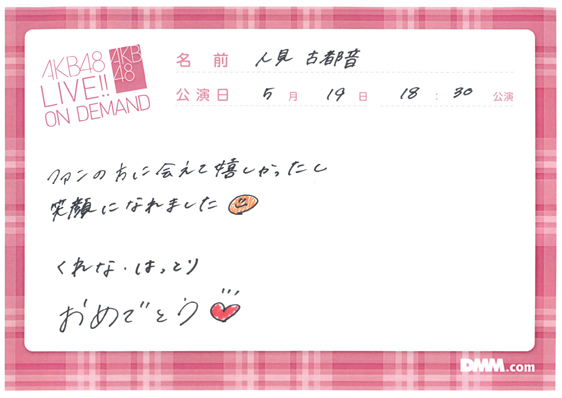 AKB48
LIVE!!
ON DEMAND
AKB
48
名前 人見 古都音
公演日 5月 19日 18:30 公演
ファンの方に会えて嬉しかったし
笑顔になれました
くれな・はっとり
おめでとう
DMM.com